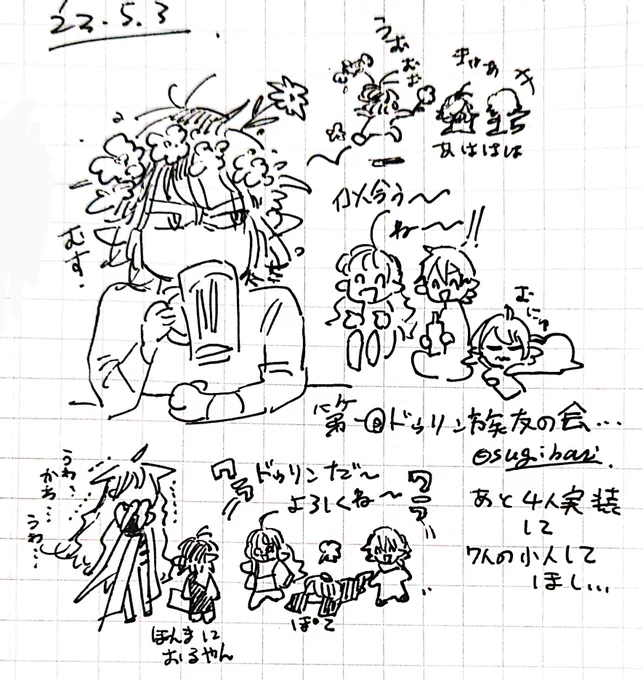 22.5.3
うむむむ
きゃあ
あははは
似合う〜
ね〜〜!!
むす.
むにゅ
第一回ドゥリン族友の会…
@sugibasi
あと4人実装
して
7人の小人して
ほし…
うわ…
かわ…
うわ…
ワラ
ドゥリンだ〜
よろしくね〜
ワラワ
ほんまに
おるやん
ぽて